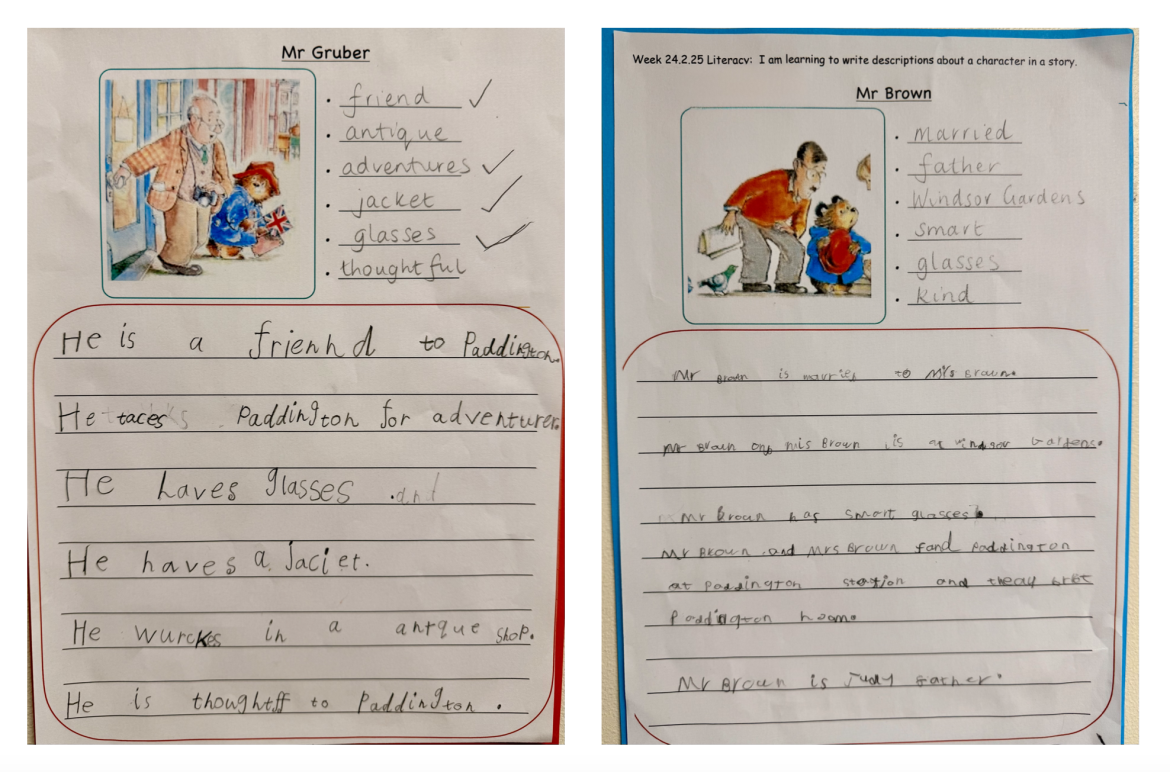 Mr Gruber
friend
antique
adventures
jacket
glasses
thoughtful
He is a frienhd to Paddington.
He taces Paddington for adventurer.
He haves glasses .and
He haves a Jaciet.
He wurckes in a antque shop.
He is thoughtff to Paddington.
Week 24.2.25 Literacy: I am learning to write descriptions about a character in a story.
Mr Brown
married
father
Windsor Gardens
smart
glasses
kind
Mr Brown is to Mrs Brown.
Mr Brown Brown is at
Mr Brown has smart glasses
Mr Brown and Mrs Brown fand Paddington
at Paddington station and theay
Paddington hoom.
Mr Brown is Judy Father.